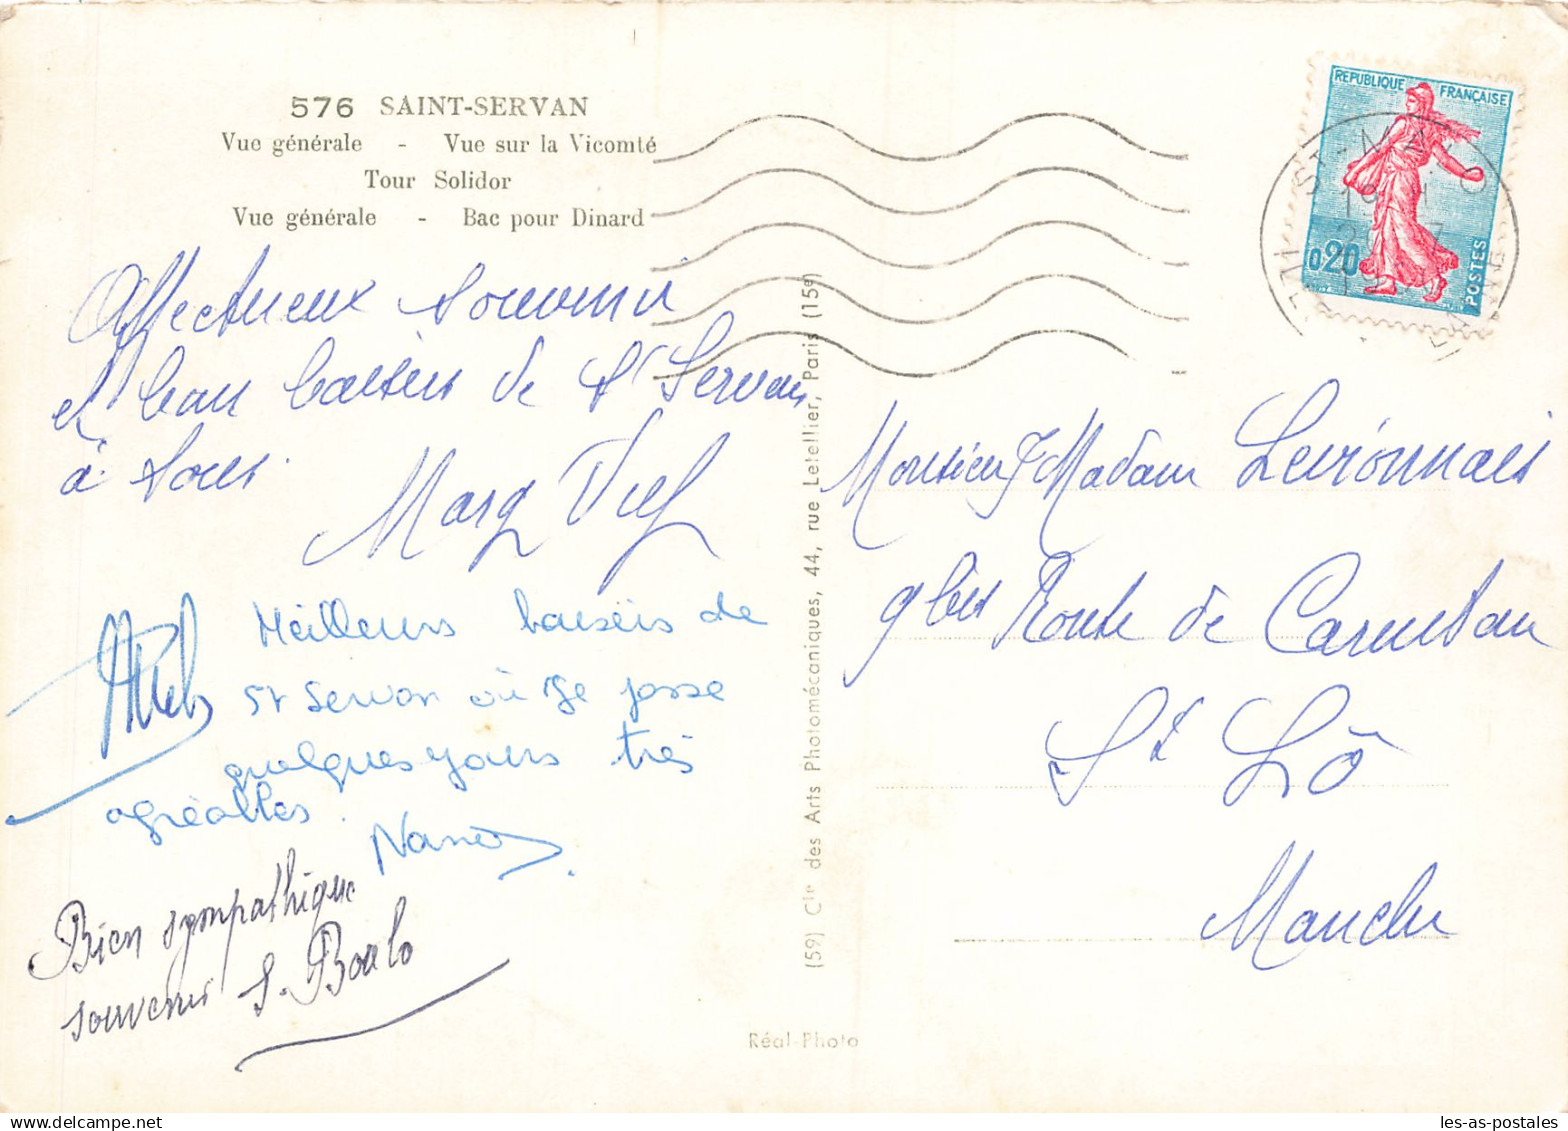 576 SAINT-SERVAN
Vue générale - Vue sur la Vicomté
Tour Solidor
Vue générale - Bac pour Dinard
Affectueux souvenir
et bons baisers de St Servan
à tous.
Meilleurs baisers de
St Servan où je passe
quelques jours très
agréables.
Bien sympathique
souvenir
(59) Cie des Arts Photomécaniques, 44, rue Letellier, Paris (15e)
Réal-Photo
REPUBLIQUE FRANÇAISE
0,20
POSTES
ST-MALO
Monsieur Madame
9 bis Route de
St Lô
Manche
les-as-postales